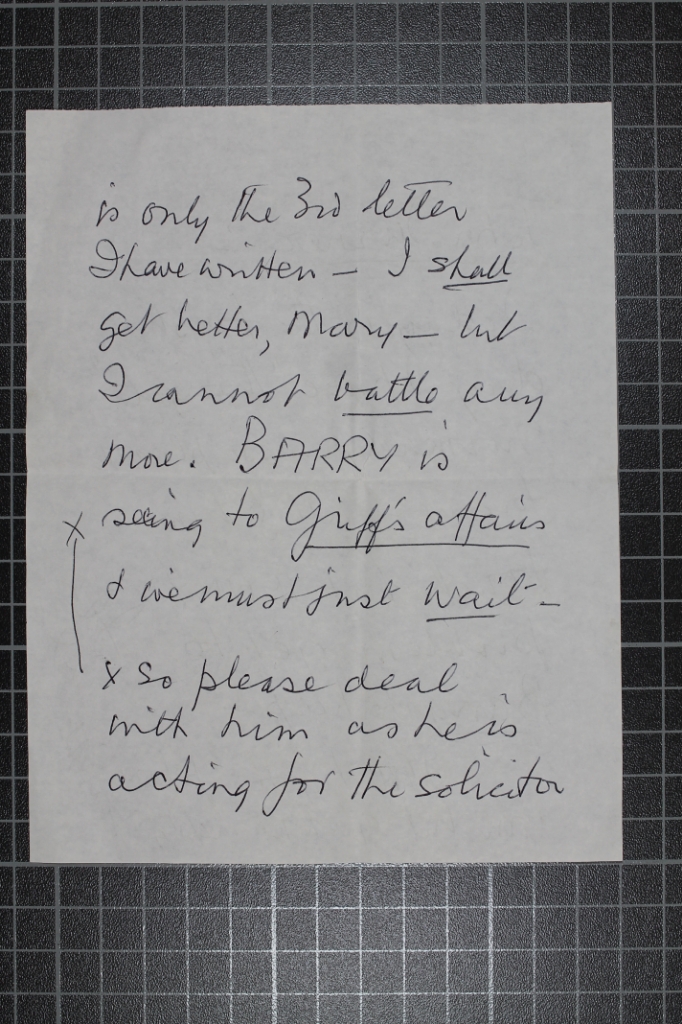 is only the 3rd letter
I have written – I shall
get better, Mary – but
I cannot battle any
more. BARRY is
x seeing to Griff's affairs
& we must just wait –
x so please deal
with him as he is
acting for the solicitor